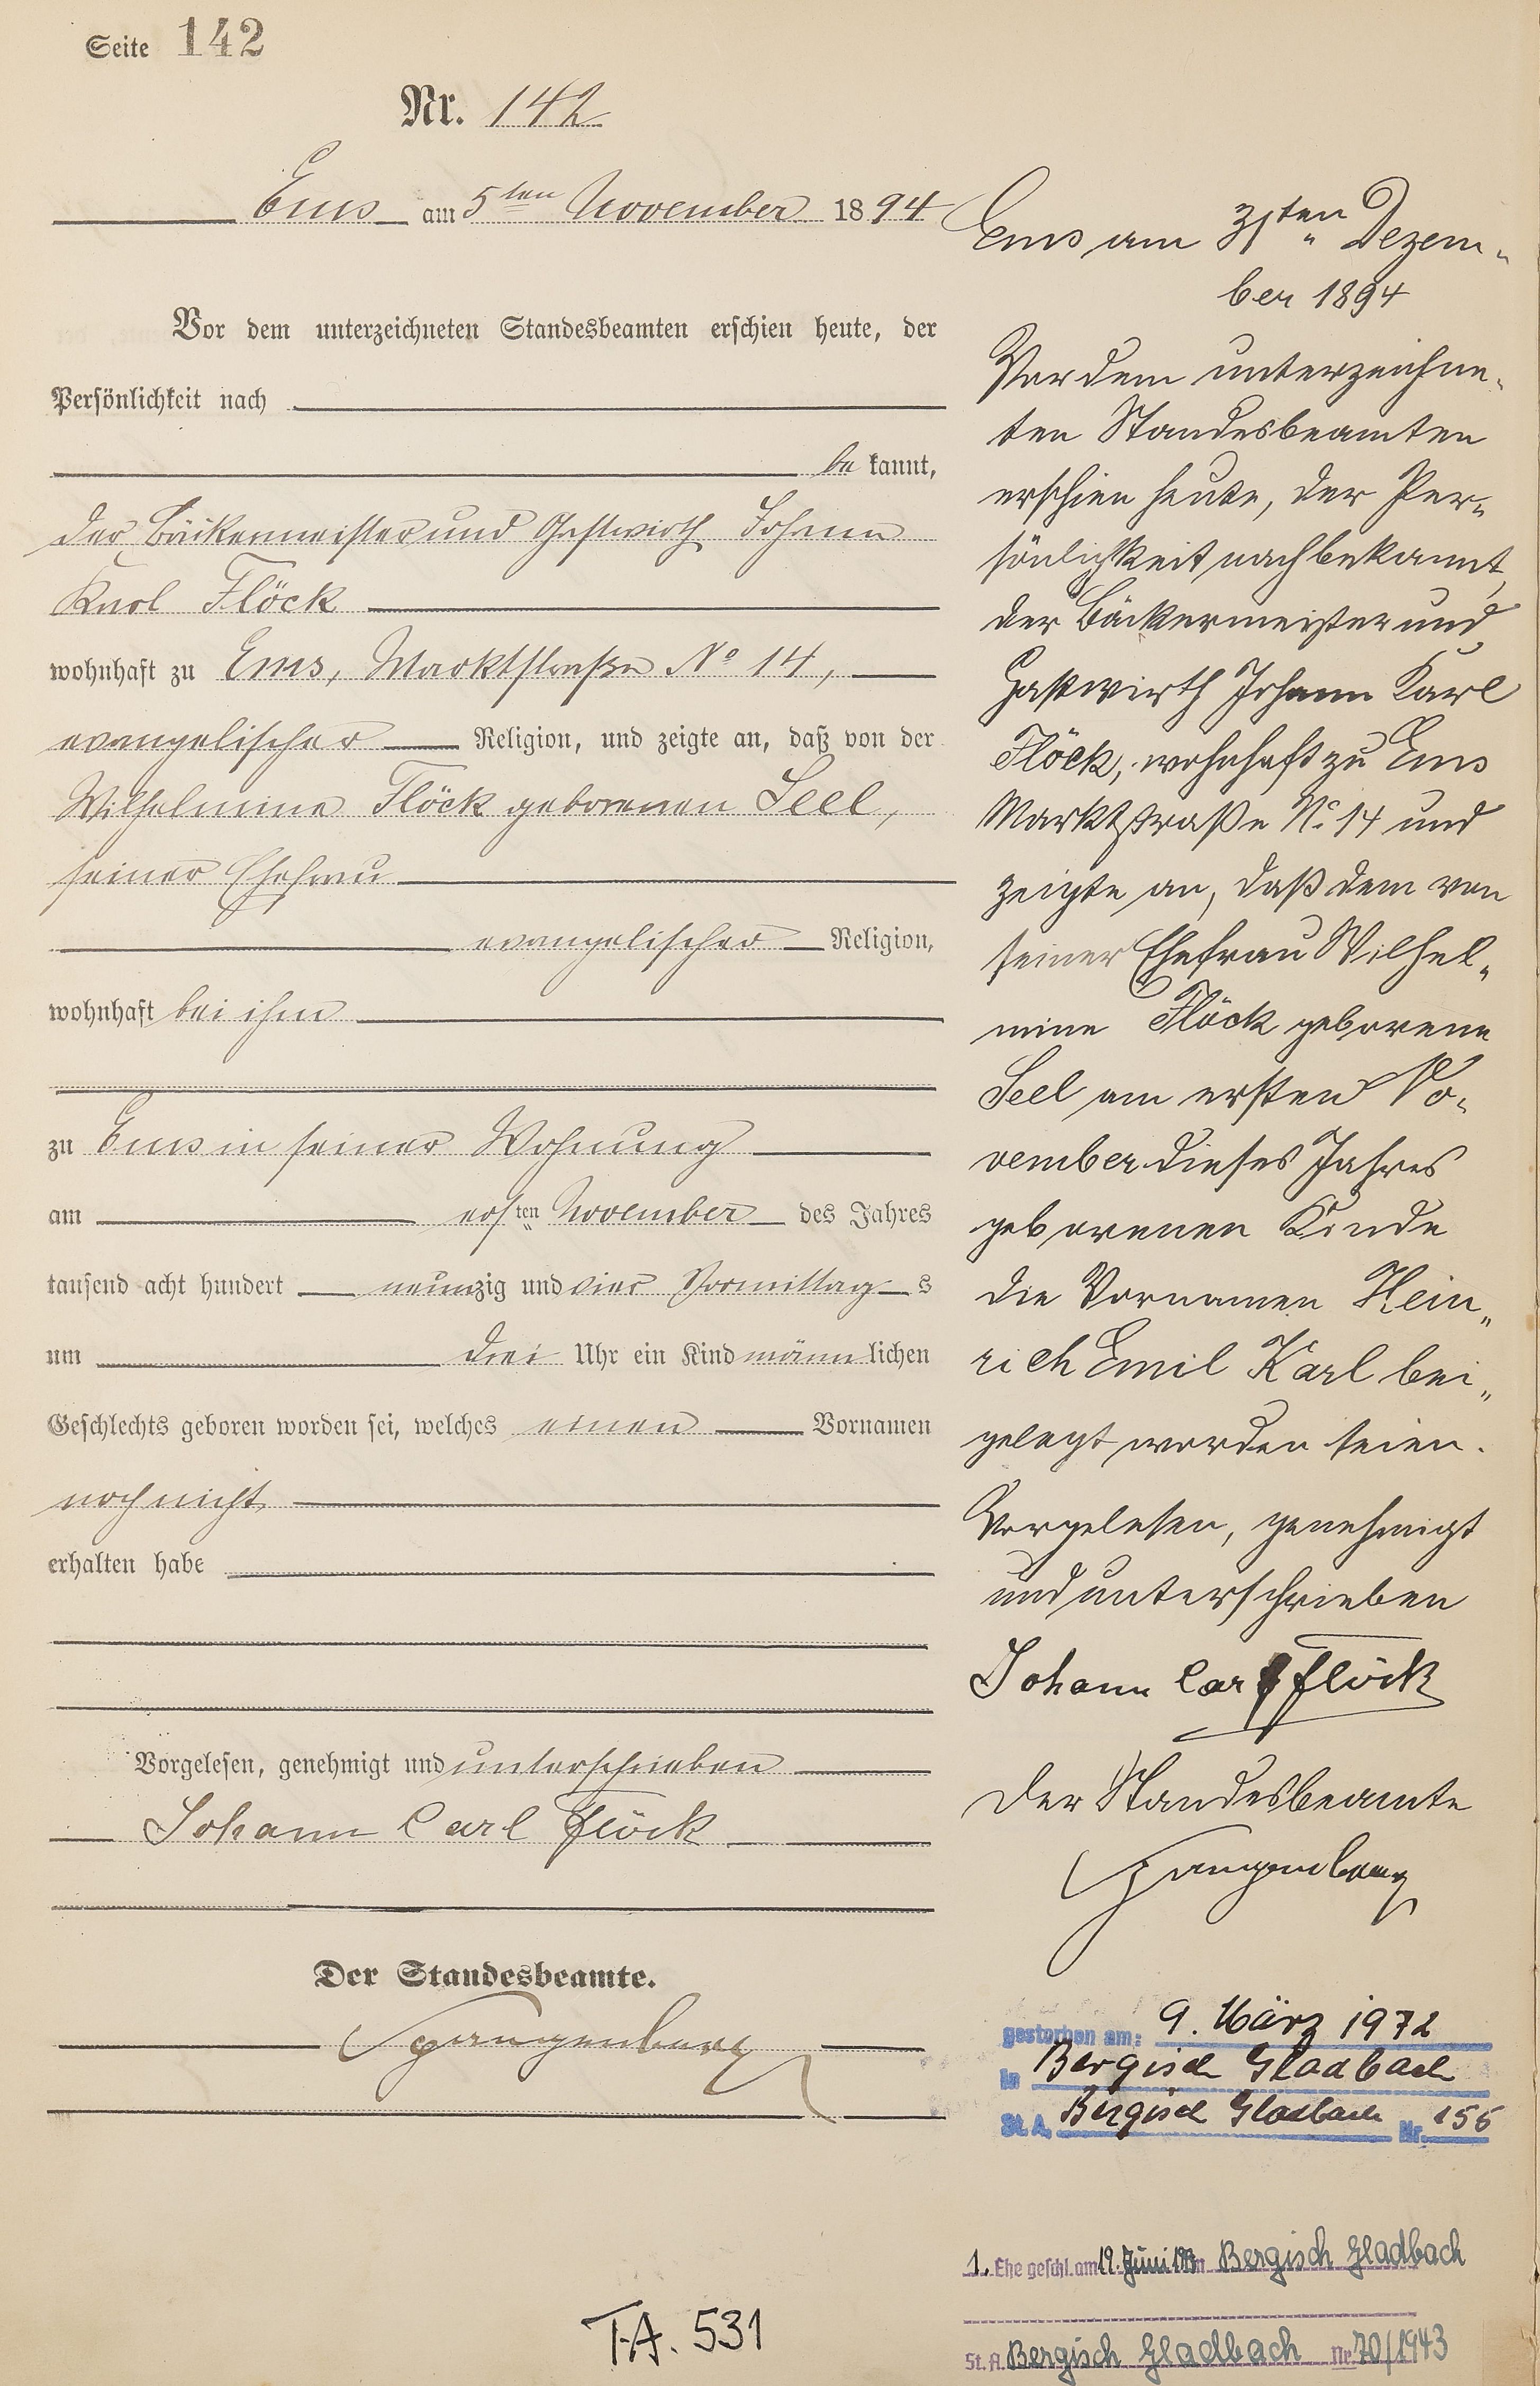 Seite 142
Nr. 142
Ems am 5ten November 1894
Vor dem unterzeichneten Standesbeamten erschien heute, der
Persönlichkeit nach
be kannt,
der Bäckermeister und Gastwirth Johann
Karl Flöck
wohnhaft zu Ems, Marktstraße No 14,
evangelischer Religion, und zeigte an, daß von der
Wilhelmine Flöck geborenen Seel,
seiner Ehefrau
evangelischer Religion,
wohnhaft bei ihm
zu Ems in seiner Wohnung
am ersten November des Jahres
tausend acht hundert neunzig und vier Vormittags
um drei Uhr ein Kind männlichen
Geschlechts geboren worden sei, welches einen Vornamen
noch nicht
erhalten habe
Vorgelesen, genehmigt und unterschrieben
Johann Carl Flöck
Der Standesbeamte.
Spangenberg
Ems am 31ten Dezem-
ber 1894
Vor dem unterzeichne-
ten Standesbeamten
erschien heute, der Per-
sönlichkeit nach bekannt,
der Bäckermeister und
Gastwirth Johann Karl
Flöck, wohnhaft zu Ems
Marktstraße No 14 und
zeigte an, daß dem von
seiner Ehefrau Wilhel-
mine Flöck geborene
Seel am ersten No-
vember dieses Jahres
geborenen Kinde
die Vornamen Hein-
rich Emil Karl bei-
gelegt worden seien.
Vorgelesen, genehmigt
und unterschrieben
Johann Carl Flöck
Der Standesbeamte
Spangenberg
gestorben am: 9. März 1972
in Bergisch Gladbach
St. A. Bergisch Gladbach Nr. 156
1. Ehe geschl. am 19. Juni in Bergisch Gladbach
St. A. Bergisch Gladbach Nr. 70/1943
T.A. 531